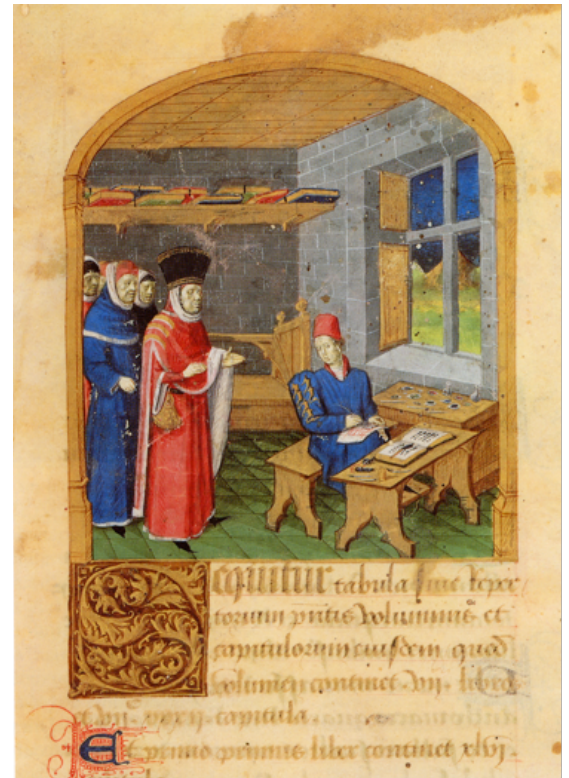 Sequitur tabula sive reper
torium pntis voluminis et
capitulorum eiusdem quod
volumen continet vii libros
et primo primus liber continet xlvi